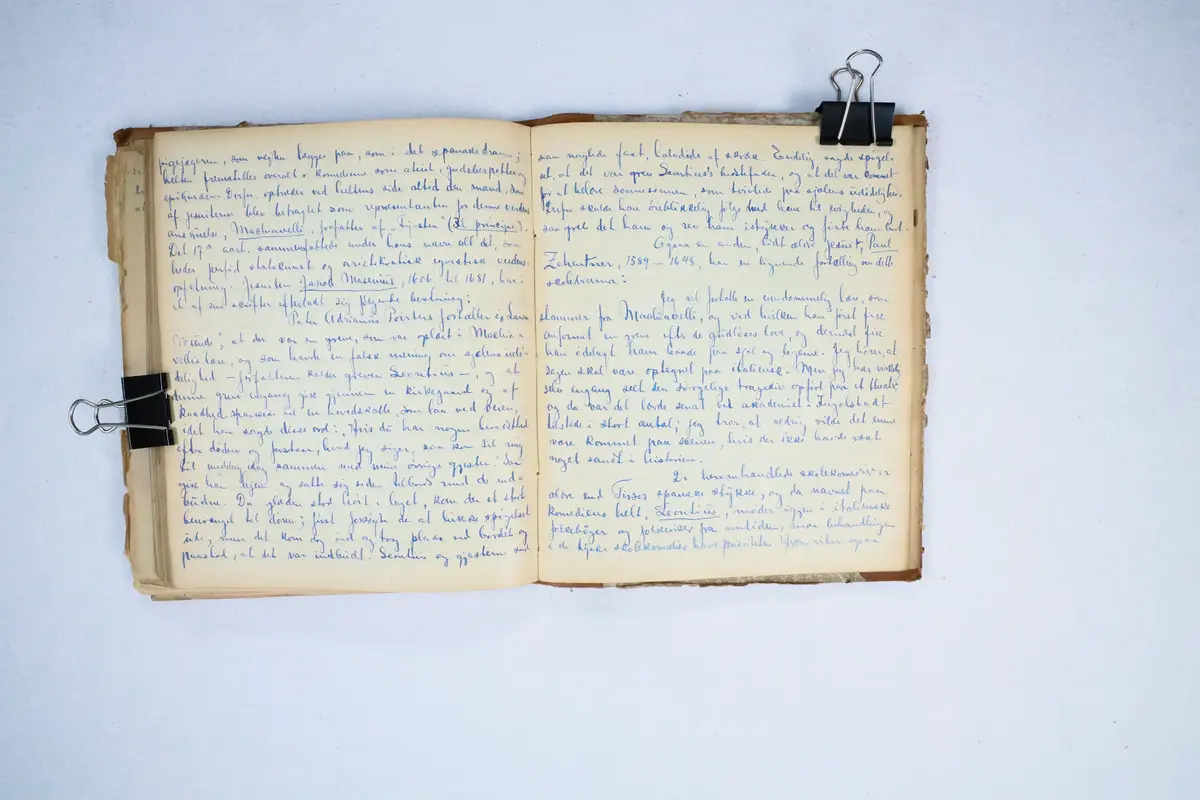 pigejægeren, som vægten lægges paa, som i det spanske drama;
helten fremstilles overalt i komedierne som atheist, gudsbespotter og
epikuræer. Derfor optræder ved heltens side altid den mand, som
af jesuiterne blev betragtet som repræsentanten for denne verdens
anskuelse, Machiavelli, forfatter af "Fyrsten" (Il principe).
Det 17de aarh. sammenfattede under hans navn alt det, som
heder perfid statskunst og aristokratisk egoistisk verdens-
opfatning. Jesuiten Jacob Masenius, 1606 til 1681, har
et af sine skrifter efterladt sig følgende beretning:
Pater Adrianus Poirters fortæller i
Mundi", at der var en greve, som var oplært i Machia-
vellis lære, og som havde en falsk mening om sjælens udø-
delighed – forfatteren kalder greven Leontius –, og at
denne greve engang gik gjennem en kirkegaard og af
kaadhed sparkede til en hovedskalle, som laa ved veien,
idet han sagde disse ord: "Hvis du har nogen bevidsthed
efter døden og forstaar, hvad jeg siger, saa kom til mig
til middag idag sammen med mine øvrige gjester." Saa
gik han hjem og satte sig siden tilbords med de ind-
budne. Da glæden stod høit i taget, kom der et stort
benrangel til døren; først forsøgte de at lukke spøgelset
ude, men det kom dog ind og tog plads ved bordet og
paastod, at det var indbudt. Leontius og gjesterne sad
som naglede fast, lamslaaede af skræk. Endelig sagde spøgel-
set, at det var grev Leontius's bestefader, og at det var kommet
for at belære sønnesønnen, som tvivlede paa sjælens udødelighed.
Derfor skulde han øieblikkelig følge med ham til evigheden, og
saa greb det ham og rev ham istykker og førte ham bort.
Ogsaa en anden, lidt ældre jesuit, Paul
Zehentner, 1589 – 1648, har en lignende fortælling om dette
skoledrama:
Jeg vil fortælle en eiendommelig lære, som
stammer fra Machiavelli, og ved hvilken han først fik
omformet en greve efter de gudløses love, og dernæst fik
han ødelagt ham baade paa sjæl og legeme. Jeg hører, at
sagen skal være optegnet paa italiensk. Men jeg har
selv engang seet den sørgelige tragedie opført paa et theater
og da var det lærde senat ved akademiet i Ingolstadt
tilstede i stort antal; jeg tror, at aldrig vilde det emne
være kommet paa scenen, hvis der ikke havde været
noget sandt i historien.
De herunhandlede skolekomedier er
ældre end Tirsos spanske stykke, og da navnet paa
komediens helt, Leontius, møder igjen i italienske
folkebøger og folkeviser fra samtiden, maa behandlingen
i de tyske skolekomedier have prioriteten.